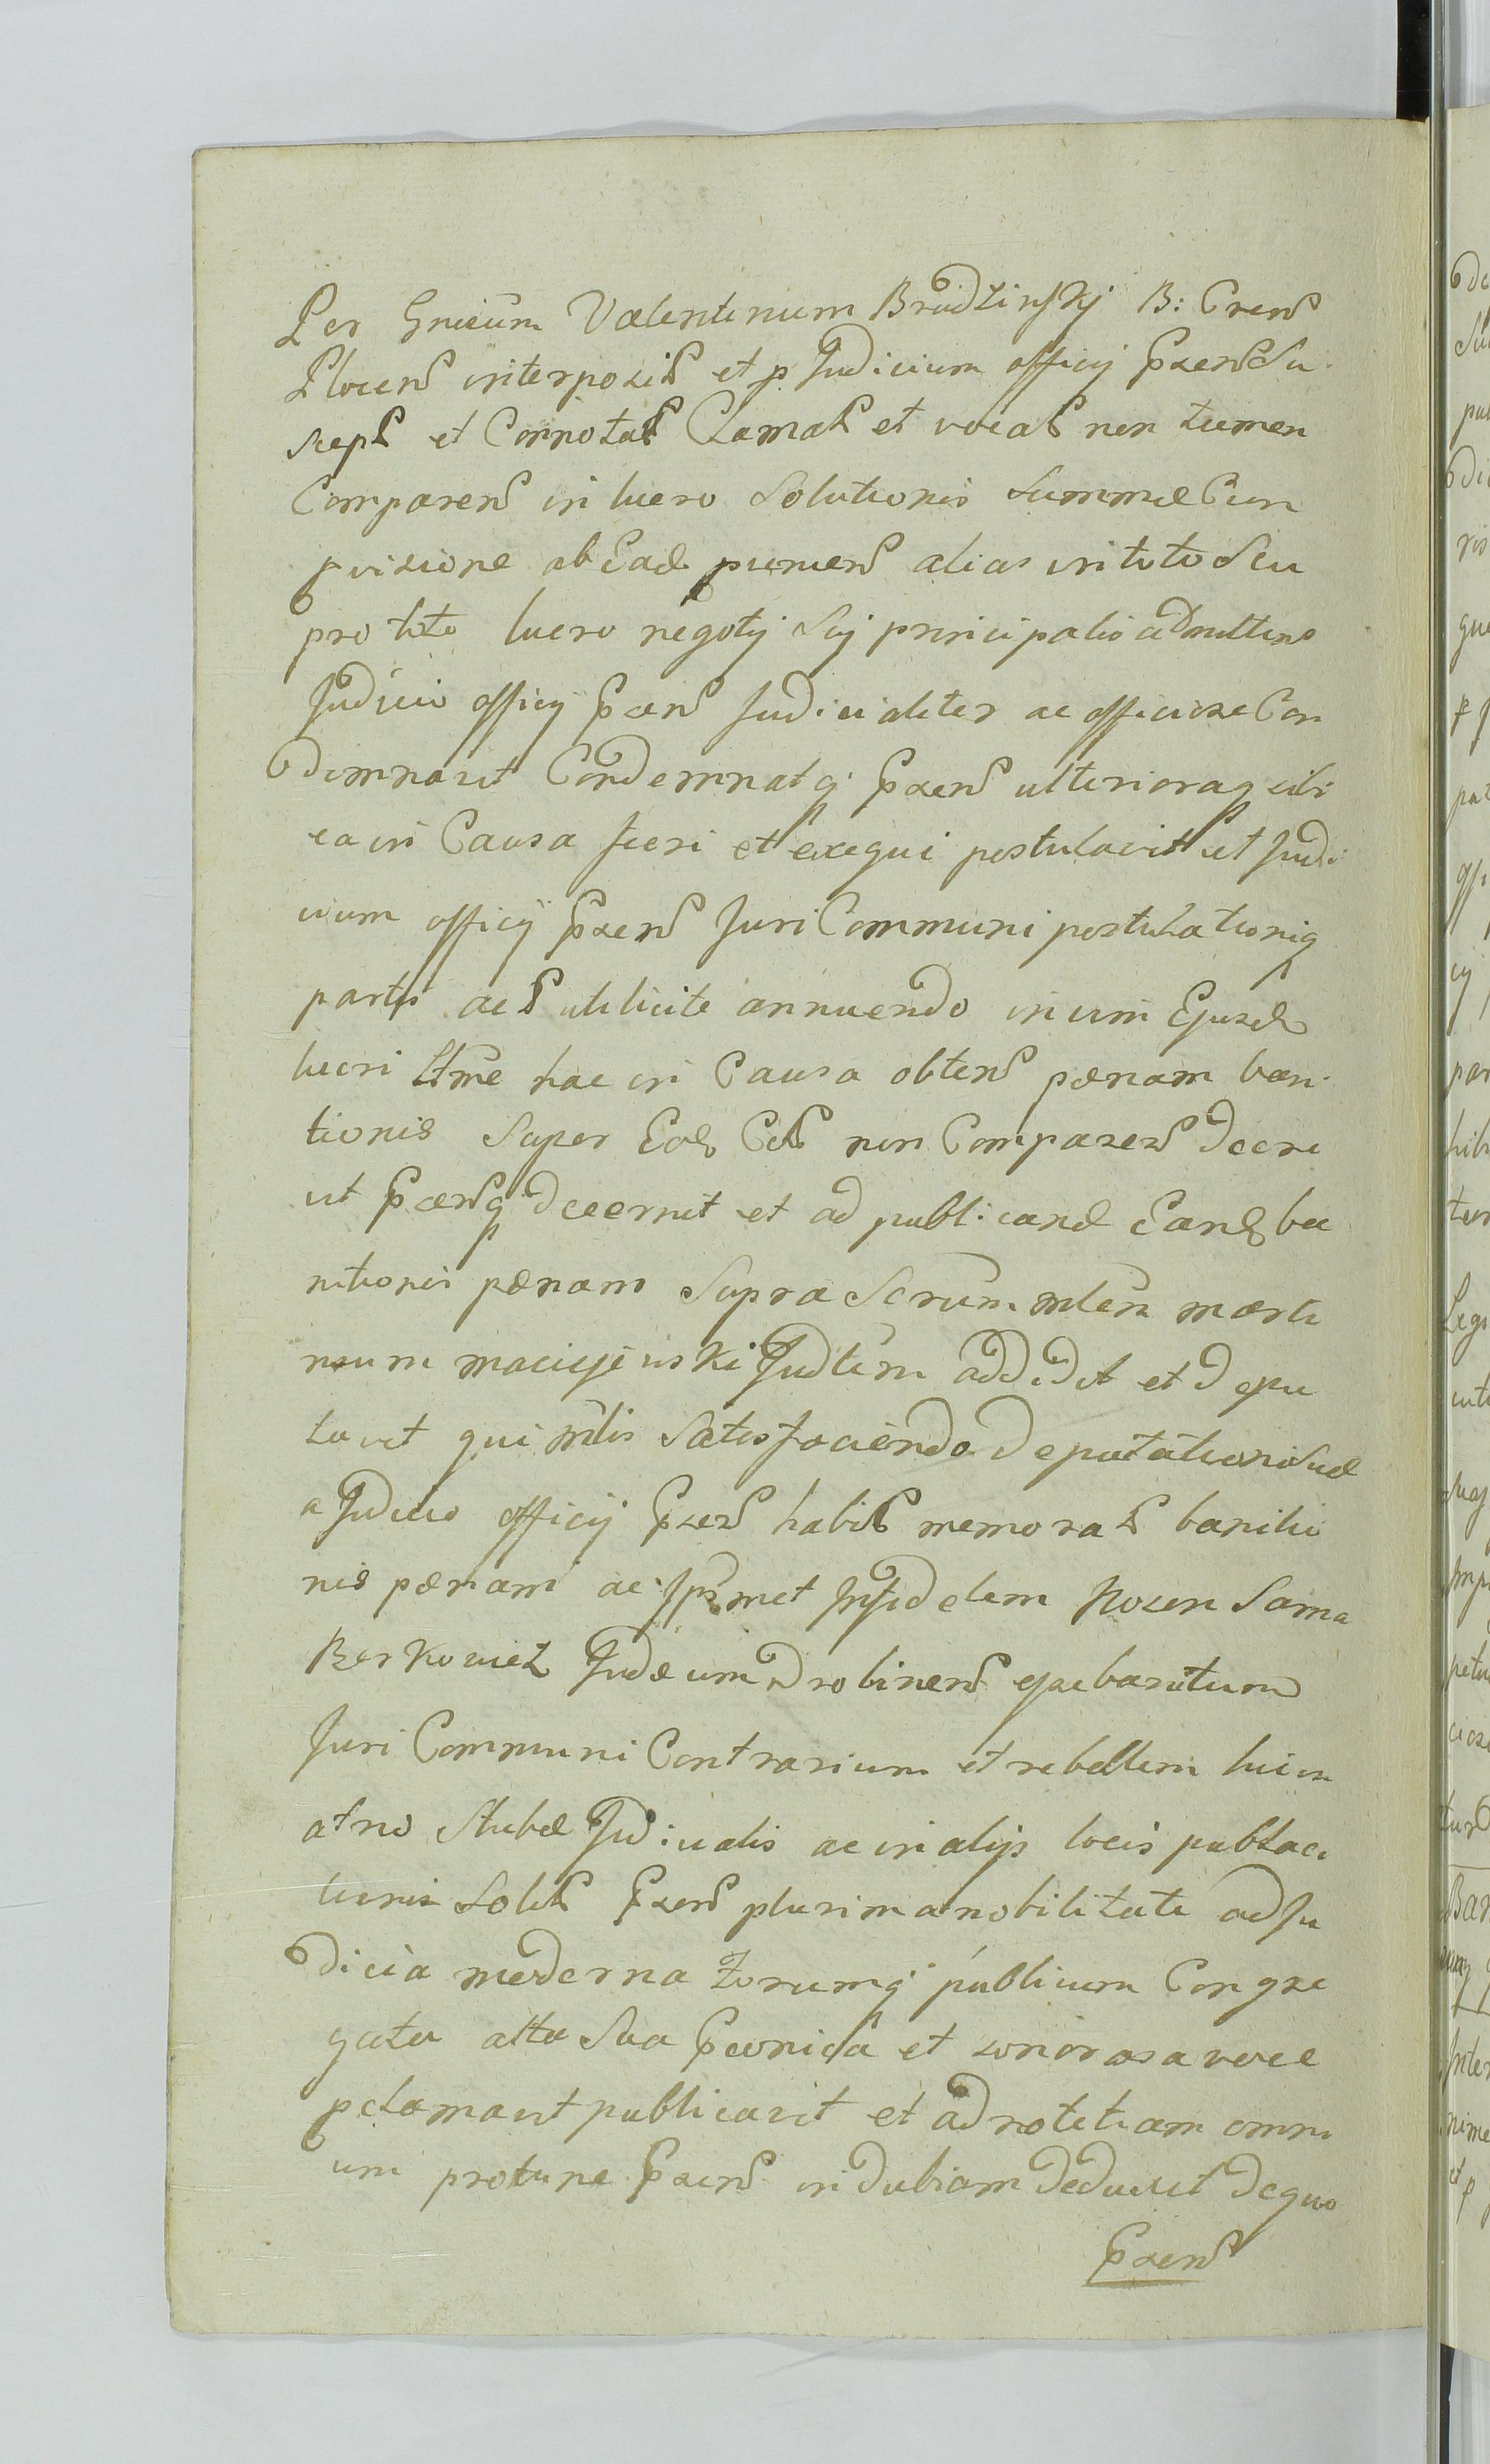 Per Gnrosum Valentinum Brudzinskj B: Cren͠s
Plocen͠s interposit͠s et p Judicium officij Pzen͠s Su
scept͠s et Connotat͠s Clamat͠s et vocat͠s non tamen
Comparen͠s in lucro Solutionis Summæ Cum
pvisione ab Ead pvenien͠s alias in toto Seu
pro toto lucro negotij Sui principalis admittens
Judicio officij Pzen͠s Judicialiter ac officiose Con
demnavit Condemnatq Pzen͠s ulterioraq sibi
ea in Causa fieri et exequi postulavit et Judi
cium officij Pzen͠s Juri Communi postulationiq
partis act͠s uti licite annuendo in vim Ejusd
lucri Ltme hac in Causa obten͠s pænam bani
tionis Super Eod Cit͠s non Comparen͠s decre
vit Pzen͠sq decernit et ad publicand Eand ba
nitionis pænam Supra Scrum mlem marti
num maciejewski Judlem addidit et depu
tavit qui mlis Satisfaciendo Deputationi Suæ
a Judicio officij Pzen͠s habit͠s memorat͠s banitio
nis pænam ac Jpsmet Jnfidelem Noten Sama
Berkowicz Judæum Drobinen͠s exebanitum
Juri Communi Contrarium et rebellem hic in
atrio Stubæ Judicialis ac in alijs locis publica
tionis Solit͠s Pzen͠s plurima nobilitate ad Ju
dicia moderna forumq publicum Congre
gata alta Sua Pconica et sonorosa voce
pclamavit publicavit et ad notitiam omni
um protunc Pzen͠s indubiam deduxit de quo
Pzen͠s